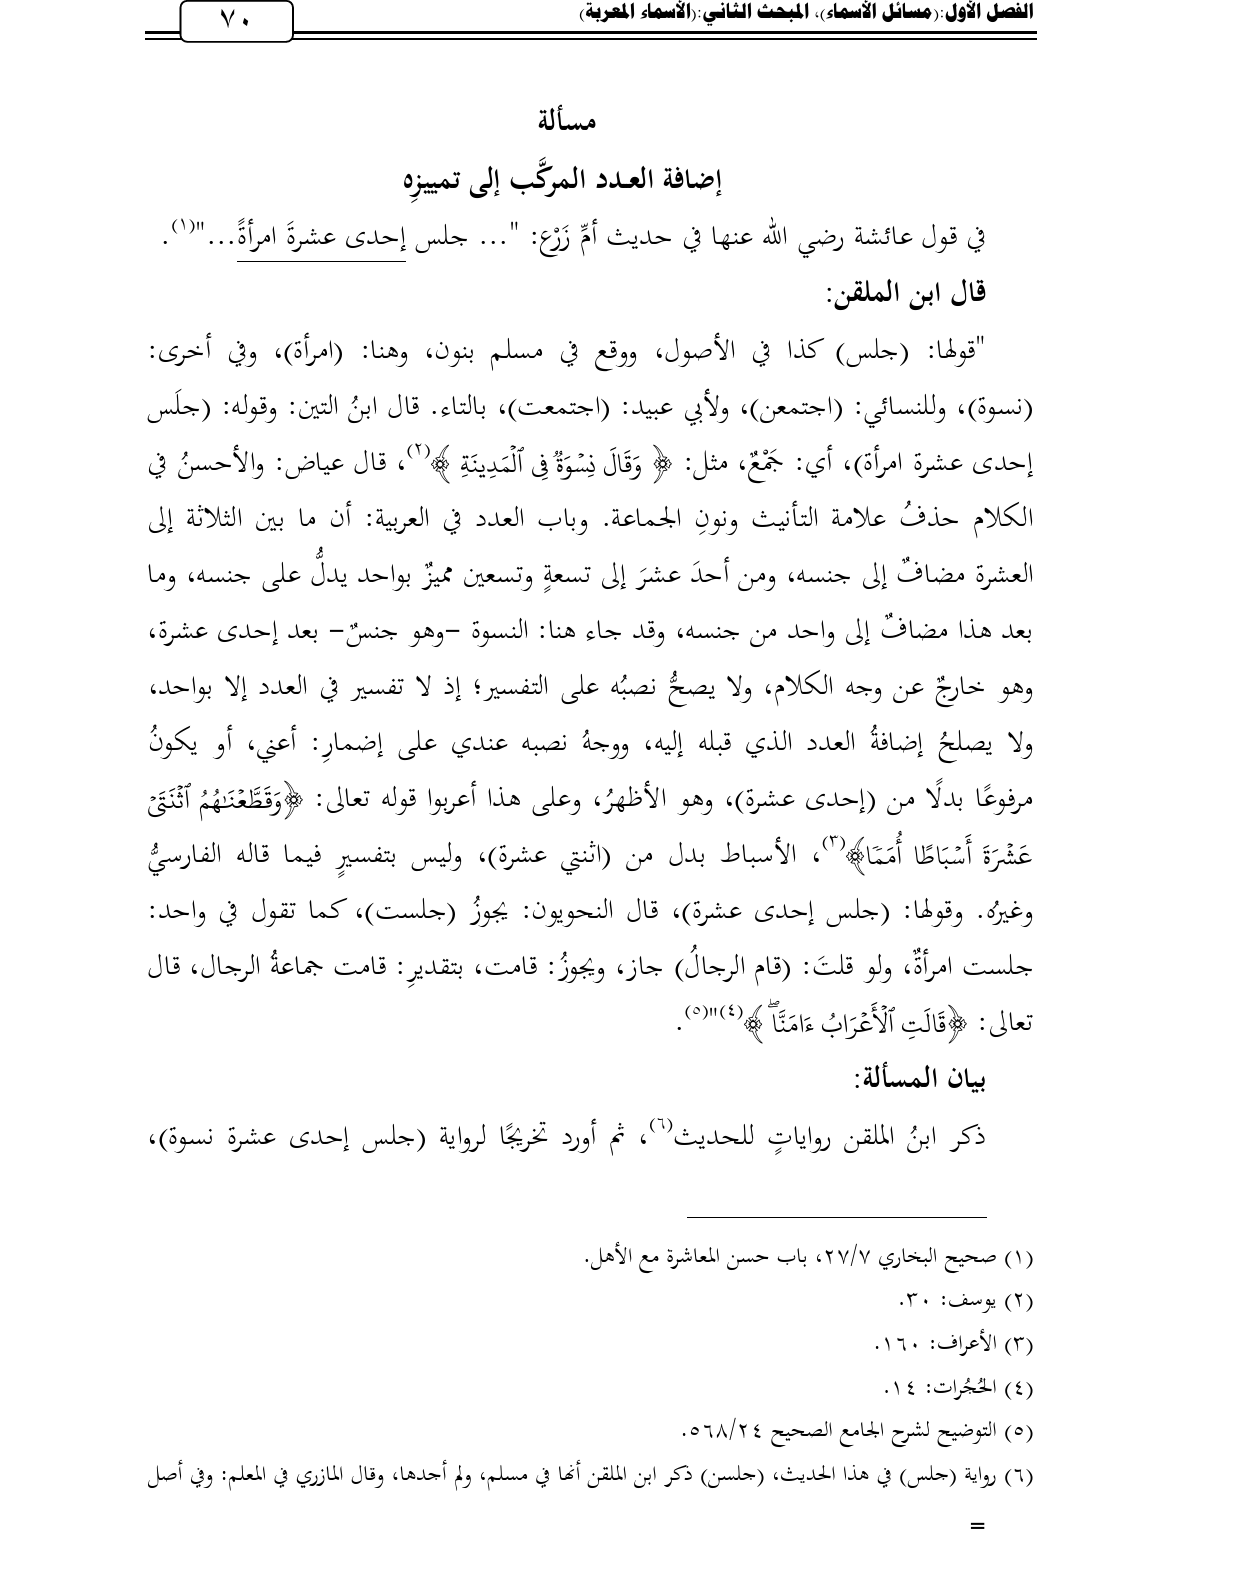 الفصل الأول:(مسائل الأسماء)، المبحث الثاني:(الأسماء المعربة)
٧٠
مسألة
إضافة العدد المركَّب إلى تمييزِه
في قول عائشة رضي الله عنها في حديث أمِّ زَرْع: "... جلس إحدى عشرةَ امرأةً..."(١).
قال ابن الملقن:
"قولها: (جلس) كذا في الأصول، ووقع في مسلم بنون، وهنا: (امرأة)، وفي أخرى:
(نسوة)، وللنسائي: (اجتمعن)، ولأبي عبيد: (اجتمعت)، بالتاء. قال ابنُ التين: وقوله: (جلَس
إحدى عشرة امرأة)، أي: جَمْعٌ، مثل: ﴿ وَقَالَ نِسۡوَةٞ فِي ٱلۡمَدِينَةِ ﴾(٢)، قال عياض: والأحسنُ في
الكلام حذفُ علامة التأنيث ونونِ الجماعة. وباب العدد في العربية: أن ما بين الثلاثة إلى
العشرة مضافٌ إلى جنسه، ومن أحدَ عشرَ إلى تسعةٍ وتسعين مميزٌ بواحد يدلُّ على جنسه، وما
بعد هذا مضافٌ إلى واحد من جنسه، وقد جاء هنا: النسوة –وهو جنسٌ– بعد إحدى عشرة،
وهو خارجٌ عن وجه الكلام، ولا يصحُّ نصبُه على التفسير؛ إذ لا تفسير في العدد إلا بواحد،
ولا يصلحُ إضافةُ العدد الذي قبله إليه، ووجهُ نصبه عندي على إضمارِ: أعني، أو يكونُ
مرفوعًا بدلًا من (إحدى عشرة)، وهو الأظهرُ، وعلى هذا أعربوا قوله تعالى: ﴿وَقَطَّعۡنَٰهُمُ ٱثۡنَتَيۡ
عَشۡرَةَ أَسۡبَاطًا أُمَمٗا﴾(٣)، الأسباط بدل من (اثنتي عشرة)، وليس بتفسيرٍ فيما قاله الفارسيُّ
وغيرُه. وقولها: (جلس إحدى عشرة)، قال النحويون: يجوزُ (جلست)، كما تقول في واحد:
جلست امرأةٌ، ولو قلتَ: (قام الرجالُ) جاز، ويجوزُ: قامت، بتقديرِ: قامت جماعةُ الرجال، قال
تعالى: ﴿قَالَتِ ٱلۡأَعۡرَابُ ءَامَنَّاۖ ﴾(٤)"(٥).
بيان المسألة:
ذكر ابنُ الملقن رواياتٍ للحديث(٦)، ثم أورد تخريجًا لرواية (جلس إحدى عشرة نسوة)،
(١) صحيح البخاري ٢٧/٧، باب حسن المعاشرة مع الأهل.
(٢) يوسف: ٣٠.
(٣) الأعراف: ١٦٠.
(٤) الحُجُرات: ١٤.
(٥) التوضيح لشرح الجامع الصحيح ٥٦٨/٢٤.
(٦) رواية (جلس) في هذا الحديث، (جلسن) ذكر ابن الملقن أنها في مسلم، ولم أجدها، وقال المازري في المعلم: وفي أصل
=